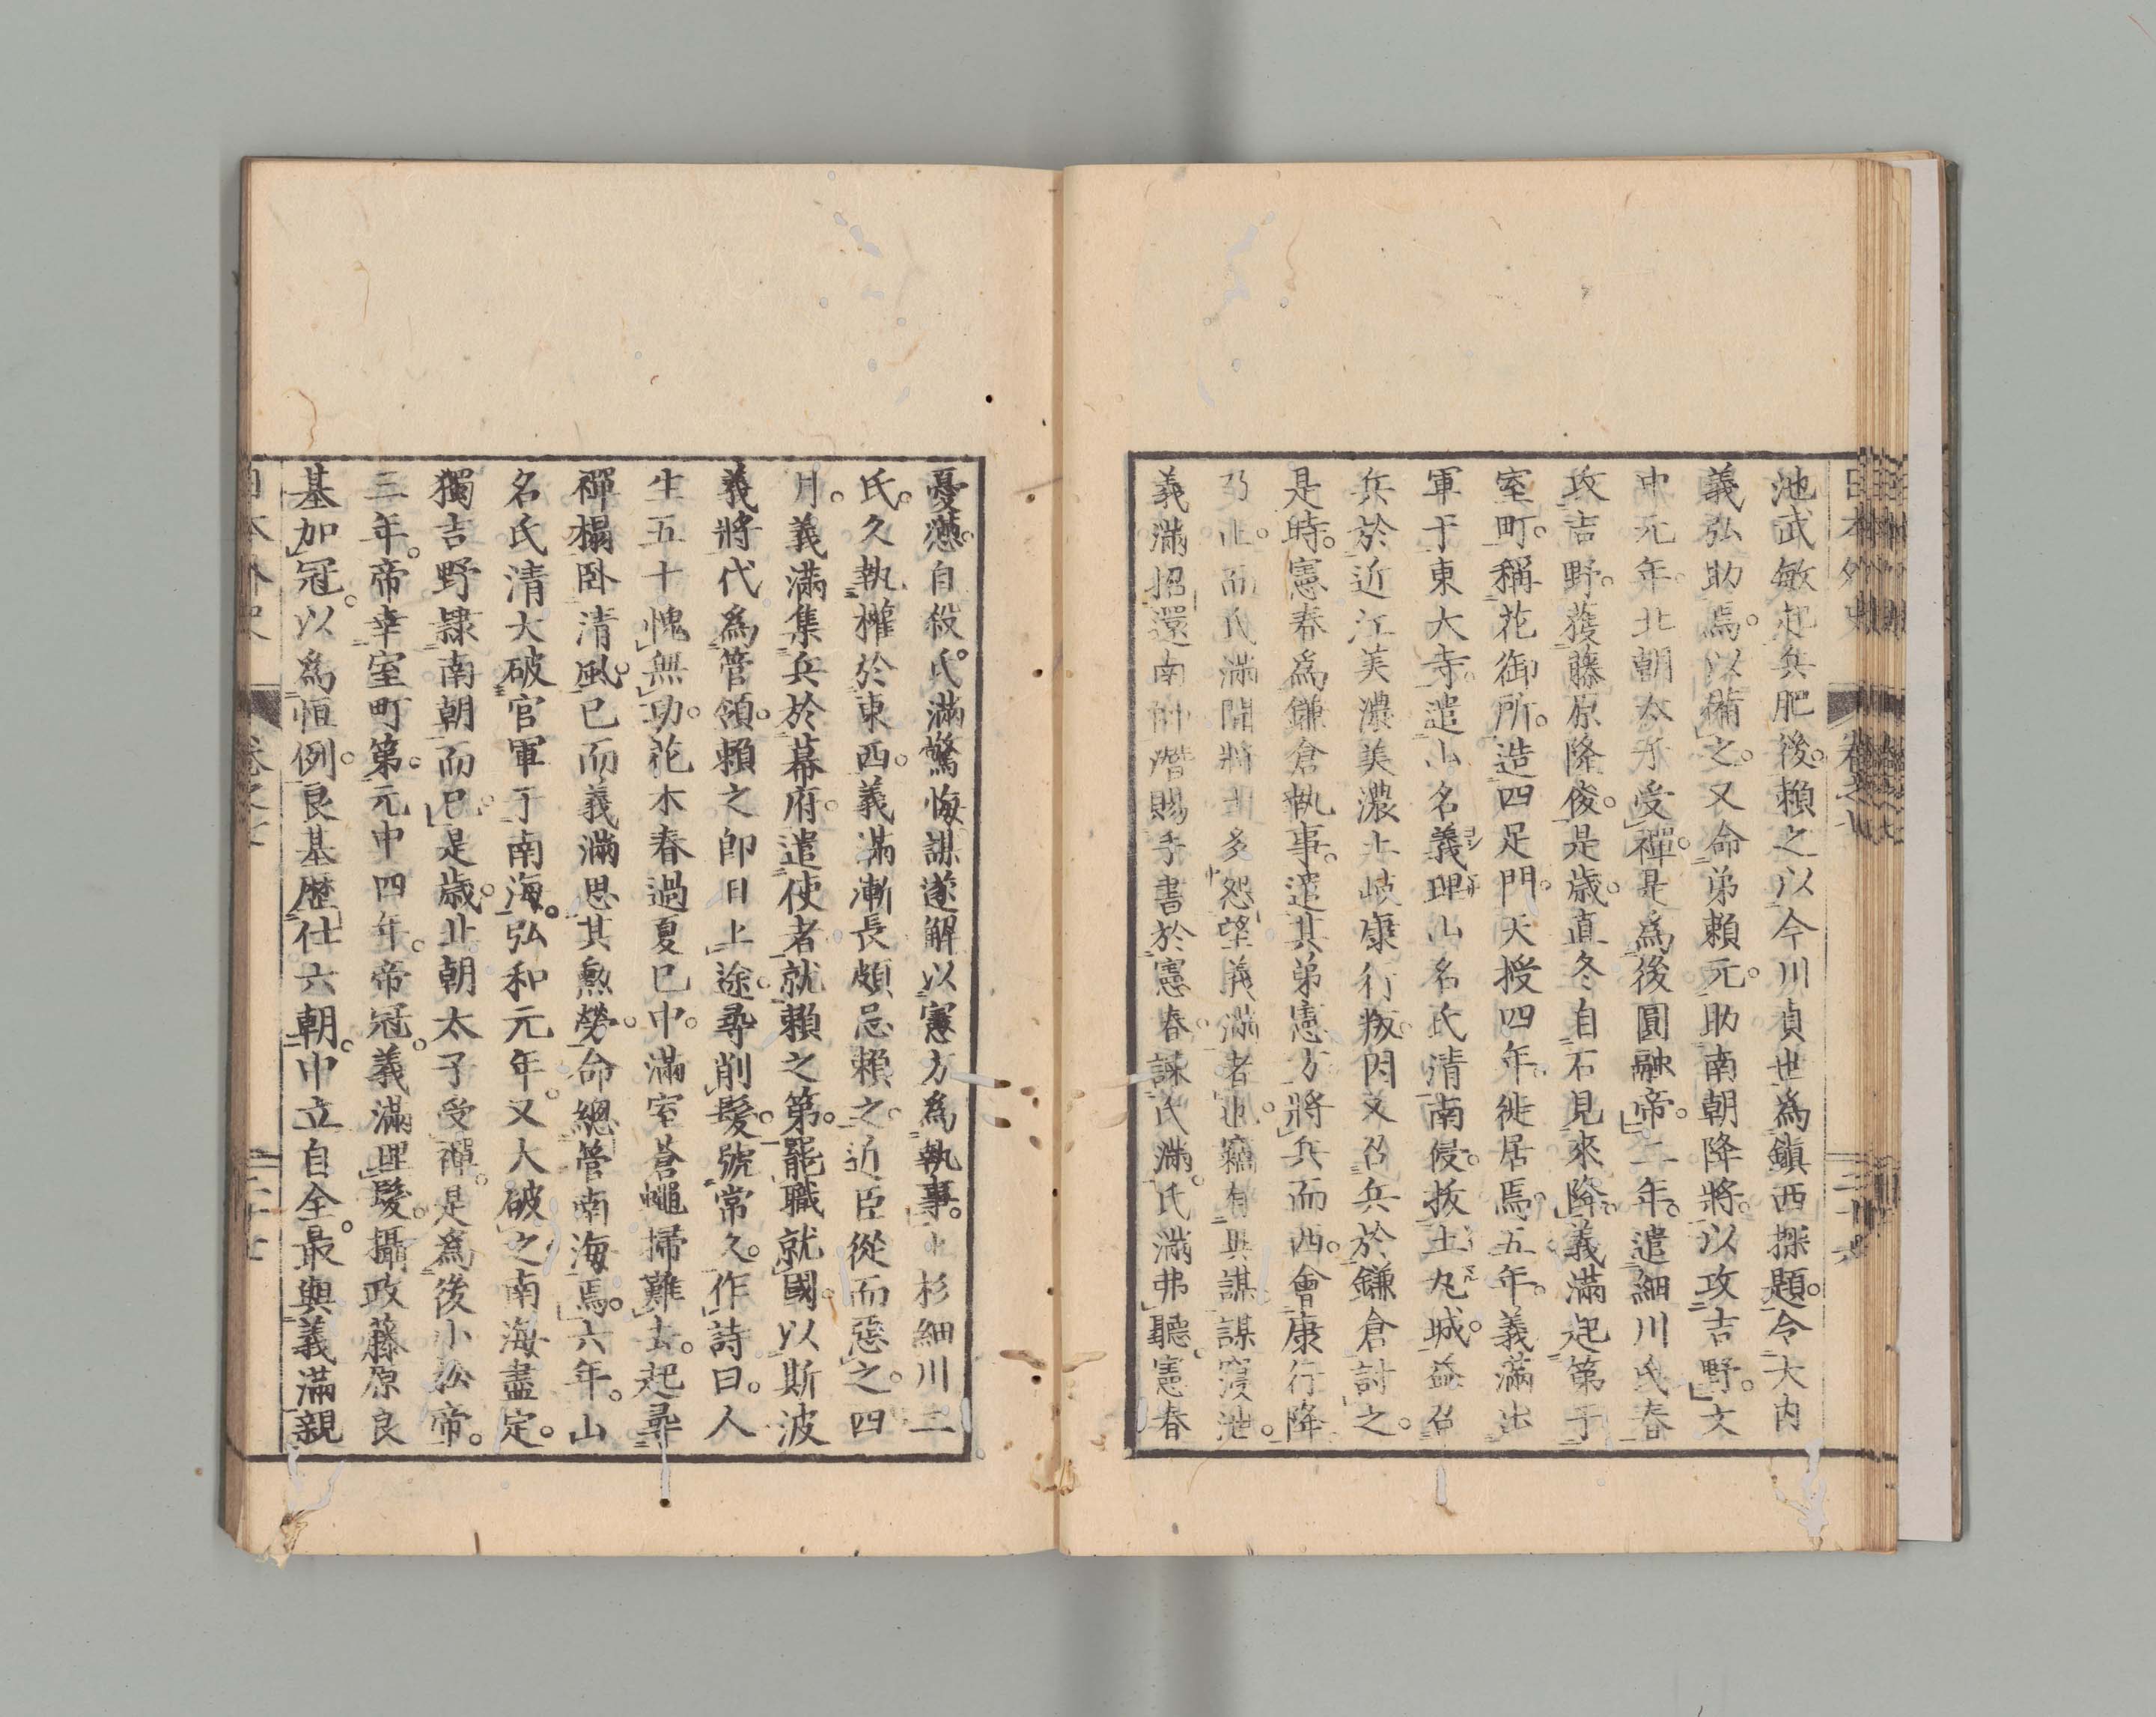 池武敏起兵肥後。賴之以今川貞世爲鎮西探題。令大内
義弘助焉。以備之。又命弟賴元。助南朝降將。以攻吉野。文
中元年。北朝太子受禪。是爲後圓融帝。二年。遣細川氏春
攻吉野。獲藤原隆俊。是歲。直冬自石見來降。義滿起第于
室町。稱花御所。造四足門。天授四年。徙居焉。五年。義滿出
軍于東大寺。遣山名義理山名氏清南侵。拔土丸城。益召
兵於近江美濃美濃土岐康行叛。因又召兵於鎌倉討之。
是時。憲春爲鎌倉執事。遣其弟憲方將兵而西。會康行降
乃止。而氏滿聞將士多怨望義滿者也。竊有異謀。謀寖泄。
義滿招還南
賜手書於憲春。諫氏滿。氏滿弗聽。憲春
憂懣。自殺。氏滿驚悔。謀遂解。以憲方爲執事。上杉細川二
氏。久執權於東西。義滿漸長。頗忌賴之。近臣從而惡之。四
月。義滿集兵於幕府。遣使者就賴之第。罷職就國。以斯波
義將代爲管領。賴之即日上途。尋削髮。號常久。作詩曰。人
生五十愧無功。花木春過夏已中。滿室蒼蠅掃難去。起尋
禪榻臥清風。已而義滿思其勲勞。命總管南海焉。六年。山
名氏清大破官軍于南海。弘和元年。又大破之南海盡定。
獨吉野隷南朝而已。是歲。北朝太子受禪。是爲後小松帝。
三年。帝幸室町第。元中四年。帝冠。義滿理髮。攝政藤原良
基加冠。以爲恒例。良基歷仕六朝。中立自全。最與義滿親
日本外史
卷之七
二十七
日本外史
卷之七
二十六